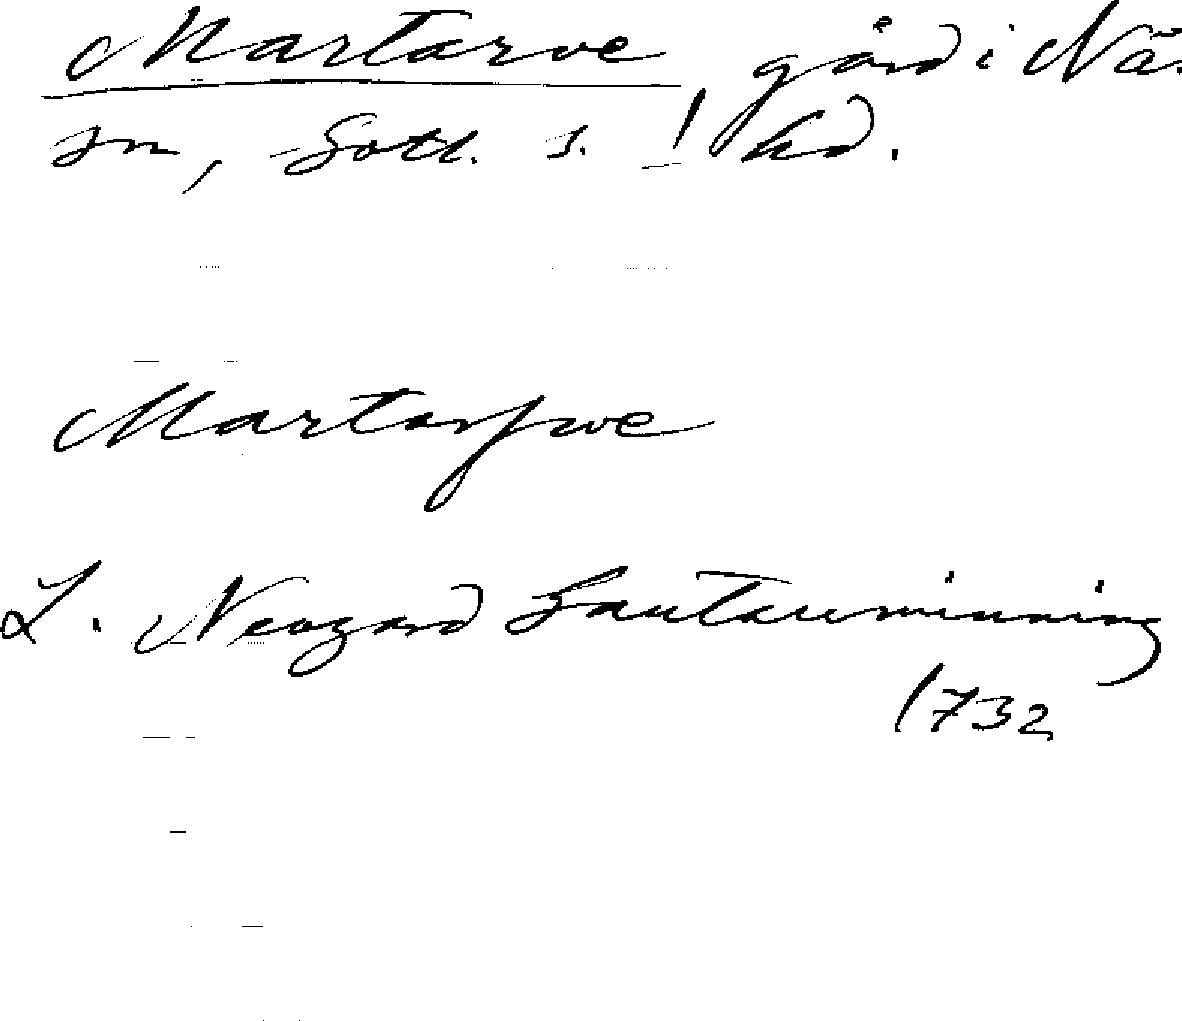 Martarve, gård i Nä
sn, Gotl. s. hd.
Martarfwe
L. Neogard Gautauminning
1732